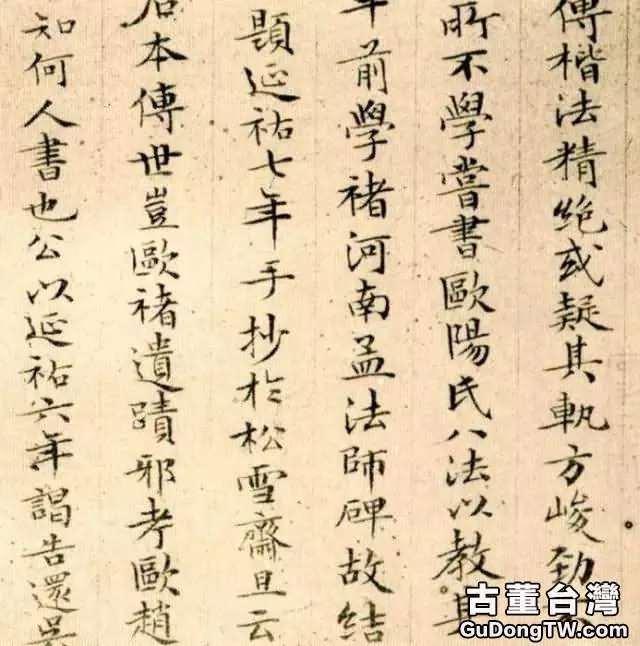 傳楷法精絶或疑其軌方峻勁
所不學嘗書歐陽氏八法以教其
年前學褚河南孟法師碑故結
題延祐七年手抄於松雪齋且云
石本傳世豈歐褚遺蹟邪考歐趙
知何人書也公以延祐六年謁告還吳
古董台灣
GuDongTW.com